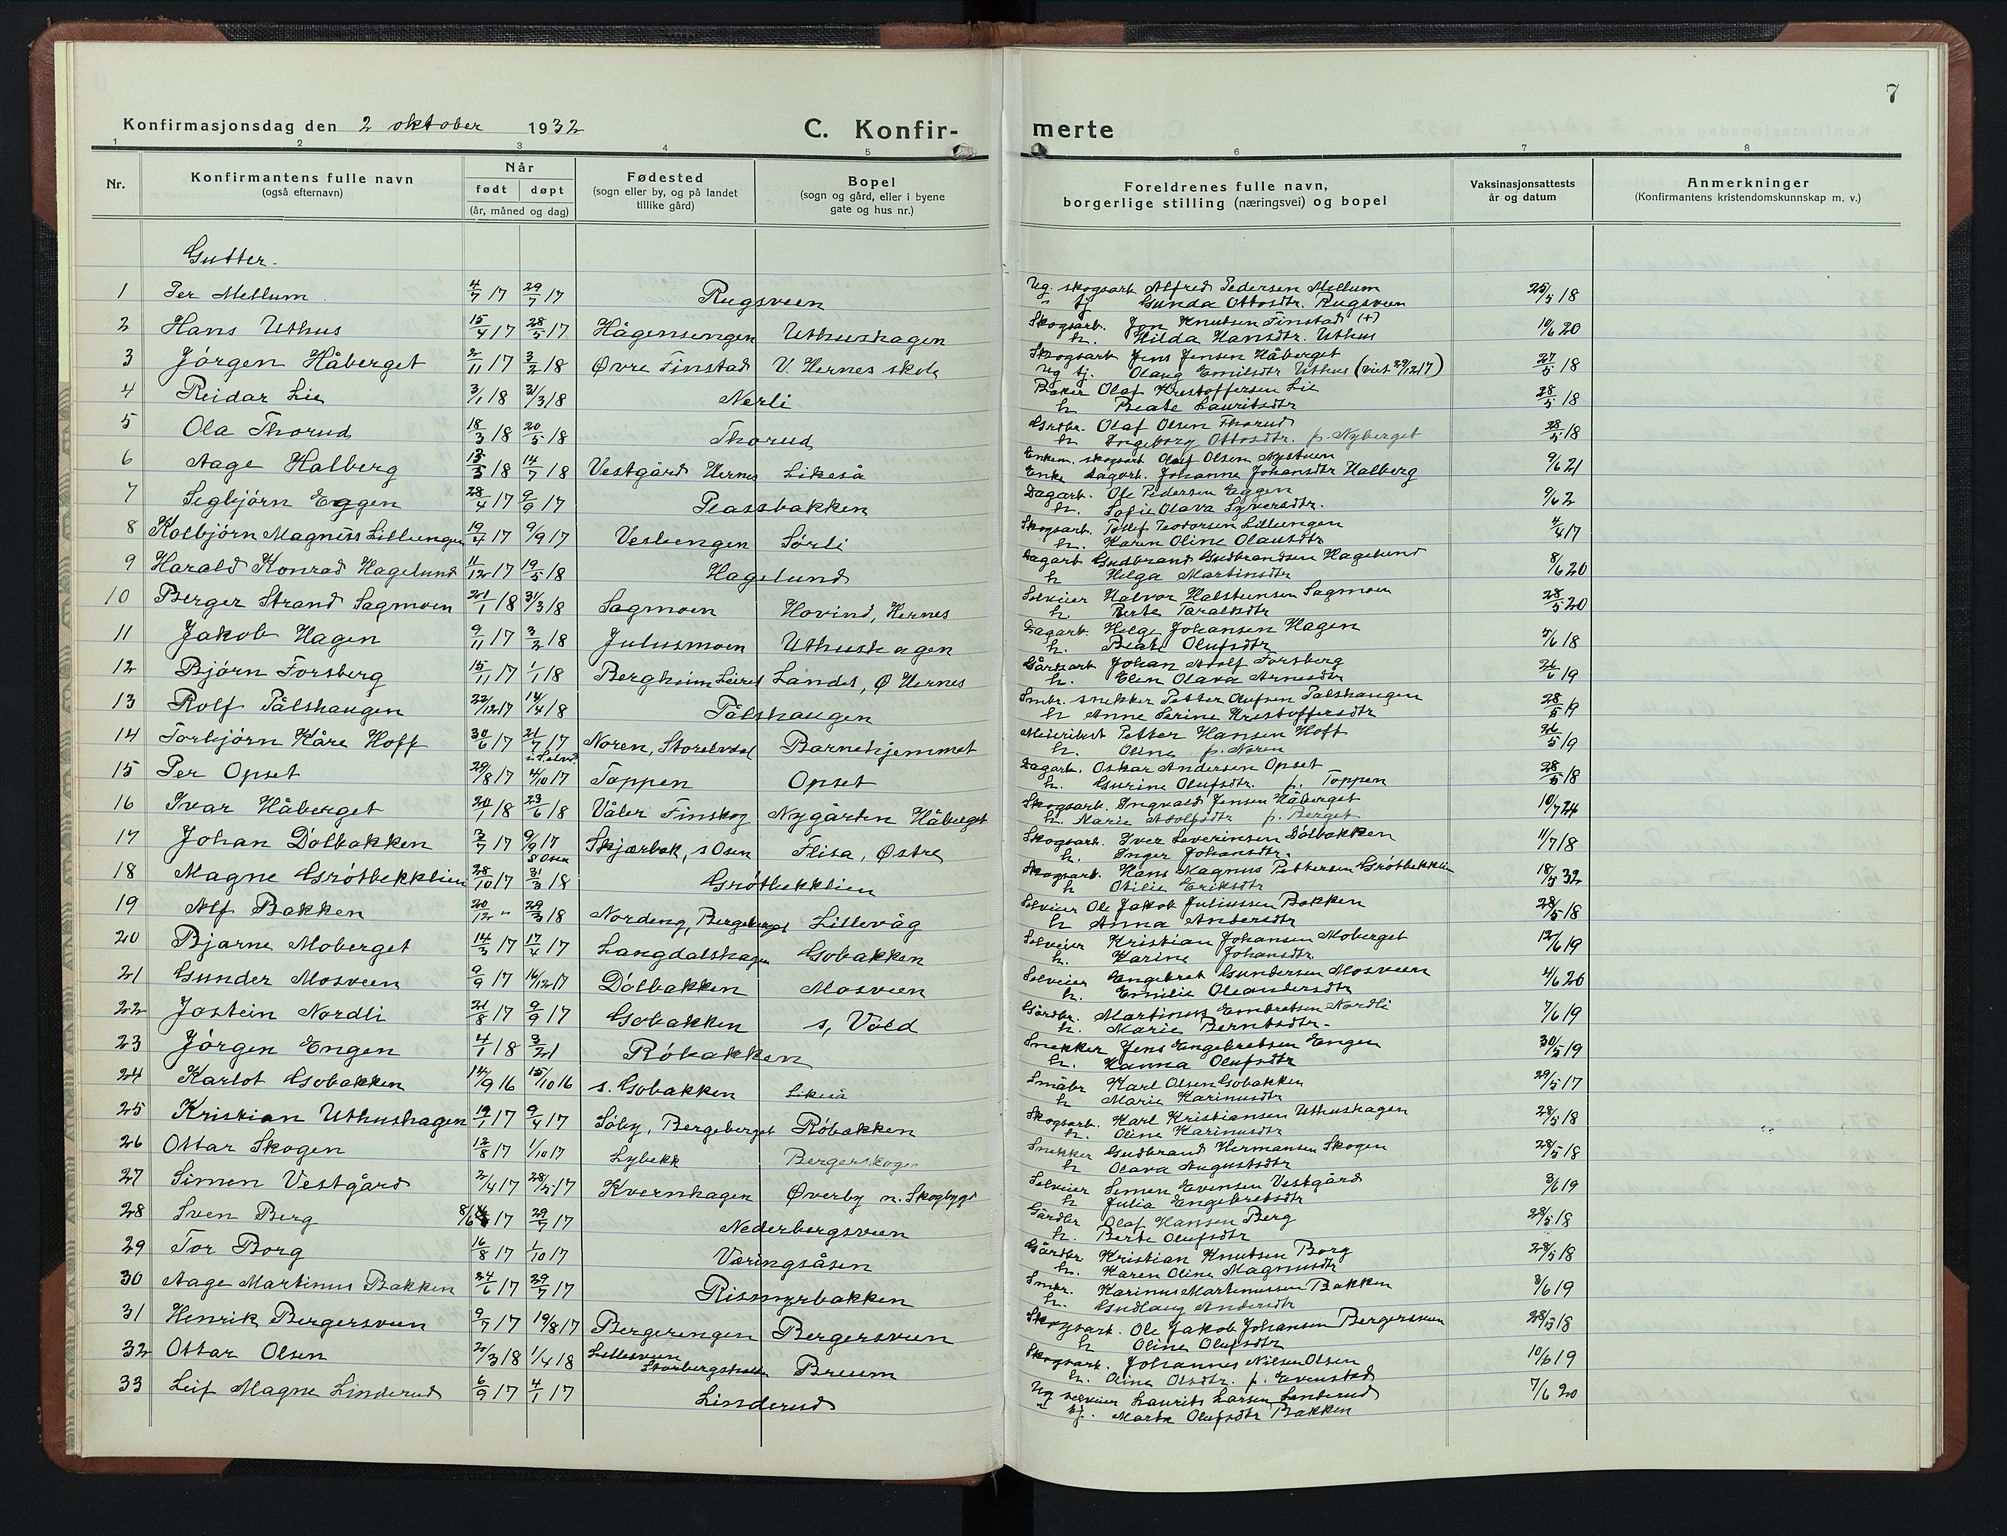 7
Konfirmasjonsdag den 2 oktober 1932
C. Konfir- merte
1 2 3 4 5 6 7 8
Nr.
Konfirmantens fulle navn
(også efternavn)
Når
født døpt
(år, måned og dag)
Fødested
(sogn eller by, og på landet
tillike gård)
Bopel
(sogn og gård, eller i byene
gate og hus nr.)
Foreldrenes fulle navn,
borgerlige stilling (næringsvei) og bopel
Vaksinasjonsattests
år og datum
Anmerkninger
(Konfirmantens kristendomskunnskap m. v.)
Gutter.
1 Per Mellum 4/7 17 29/7 17 Rugsveen Ug. skogsarb Alfred Pedersen Mellum 25/5 18
" tj Gunda Ottosdtr. Rugsveen
2 Hans Uthus 15/4 17 28/5 17 Hågensengen Uthushagen Skogsarb. Jon Knutsen Finstad (+) 10/6 20
h. Hilda Hansdtr. Uthus
3 Jørgen Håberget 2/11 17 3/2 18 Øvre Finstad V. Hernes skole Skogsarb Jens Jensen Håberget 27/5 18
Ug tj. Olaug Emilsdtr Uthus (viet 29/12 17)
4 Reidar Lie 3/1 18 31/3 18 Nerli Baker Olaf Kristoffersen Lie 28/5 18
h Beate Lauritsdtr
5 Ola Thorud 18/3 18 20/5 18 Thorud Grdbr. Olaf Olsen Thorud 28/5 18
h Ingeborg Ottosdtr. f. Nyberget
6 Aage Halberg 18 14/7 18 Vestgård Hernes Likeså Enkem. skogsarb Olaf Olsen Nystuen 9/6 21
Enke dagarb. Johanne Johansdtr Halberg
7 Segbjørn Eggen 28/4 17 9/9 17 Plassbakken Dagarb. Ole Pedersen Eggen 9/6 2
h. Sofie Olava Syversdtr.
8 Kolbjørn Magnus Lillengen 19/7 17 9/9 17 Vestengen Sørli Skogsarb. Tollef Teodorsen Lillengen 4/4 17
h. Karen Oline Olausdtr
9 Harald Konrad Hagelund 11/12 17 19/5 18 Hagelund Dagarb Gudbrand Gudbrandsen Hagelund 8/6 20
h Helga Martinsdtr
10 Berger Strand Sagmoen 21/1 18 31/3 18 Sagmoen Hovind, Hernes Selveier Halvor Halstensen Sagmoen 28/5 20
h Berte Taraldsdtr
11 Jakob Hagen 9/11 17 3/2 18 Julusmoen Uthushagen Dagarb. Helge Johansen Hagen 5/6 18
h. Beate Olufsdtr
12 Bjørn Forsberg 15/11 17 1/1 18 Bergheim Leiret Landet, Ø Hernes Gårdsarb Johan Adolf Forsberg 26/6 19
h. Elen Olava Arnesdtr
13 Rolf Pålshaugen 22/12 17 14/4 18 Pålshaugen Smbr. snekker Petter Olufsen Pålshaugen 28/5 19
h Anne Serine Kristoffersdtr
14 Torbjørn Kåre Hoff 30/6 17 21/7 17 Noren, Storelvdal Barnehjemmet Meieribest Petter Hansen Hoff 26/5 19
h. Oline f. Noren
15 Per Opset 29/8 17 4/10 17 Toppen Opset Dagarb. Oskar Andersen Opset 28/5 18
h. Gurine Olufsdtr. f. Toppen
16 Ivar Håberget 20/1 18 23/6 18 Våler Finskog Nygården Håberget Skogsarb. Ingvald Jensen Håberget 10/7 24
h. Marie Adolfsdtr f. Berget
17 Johan Dølbakken 3/7 17 9/9 17 Skjærbæk, s Osen Flisa, Østre Skogsarb. Iver Severinsen Dølbakken 11/7 18
S Osen h. Inger Johansdtr.
18 Magne Grøtbekklien 28/10 17 31/3 18 Grøtbekklien Skogsarb. Hans Magnus Pettersen Grøtbekklien 18/5 32
h Otilie Eriksdtr
19 Alf Bakken 20/12 " 29/3 18 Nordeng, Bergeberget Lillevåg Selveier Ole Jakob Juliussen Bakken 28/5 18
h Anna Andersdtr
20 Bjarne Moberget 14/3 17 17/4 17 Langdalshagen Gobakken Selveier Kristian Johansen Moberget 12/6 19
h. Karine Johansdtr.
21 Gunder Mosveen 9/9 17 16/12 17 Dølbakken Mosveen Selveier Engebret Gundersen Mosveen 4/6 20
h. Emilie Oleandersdtr
22 Jostein Nordli 21/8 17 9/9 17 Gobakken s, Vold Gårdbr. Martinus Embretsen Nordli 7/6 19
h. Marie Berntsdtr.
23 Jørgen Engen 4/1 18 3/21 Røbakken Snekker Jens Engebretsen Engen 30/5 19
h. Hanna Olufsdtr
24 Karlot Gobakken 14/9 16 15/10 16 s. Gobakken Likeså Småbr Karl Olsen Gobakken 29/5 17
h Marie Karinusdtr
25 Kristian Uthushagen 19/1 17 9/4 17 Søby, Bergeberget Røbakken Skogsarb. Karl Kristiansen Uthushagen 28/5 18
h. Oline Karinusdtr
26 Ottar Skogen 12/8 17 1/10 17 Lybekk Bergerskogen Snekker Gudbrand Hermansen Skogen 28/5 18
h Olava Augustsdtr
27 Simen Vestgård 2/4 17 28/5 17 Kvernhagen Øverby n. Skogbygd Selveier Simen Evensen Vestgård 3/6 19
h Julia Engebretsdtr
28 Sven Berg 8/6 17 29/7 17 Nederbergsveen Gårdbr Olaf Hansen Berg 28/5 18
h. Berte Olufsdtr
29 Tor Borg 16/8 17 1/10 17 Væringsåsen Gårdbr Kristian Knutsen Borg 28/5 18
h. Karen Oline Magnusdtr
30 Aage Martinus Bakken 24/6 17 29/7 17 Rismyrbakken Smbr. Karinus Martinussen Bakken 3/6 19
h. Gudlaug Andersdtr
31 Henrik Bergersveen 9/7 17 19/8 17 Bergerengen Bergersveen Skogsarb. Ole Jakob Johansen Bergersveen 28/5 18
h Oline Olufsdtr
32 Ottar Olsen 2/3 18 1/4 18 Lillesveen Breum Skogsarb. Johannes Nilsen Olsen 10/6 19
h. Oline Olsdtr. f. Evenstad
33 Leif Magne Linderud 6/9 17 4/1 17 Linderud Ug selveier Laurits Larsen Linderud 7/6 20
" tj. Marta Olufsdtr Bakken